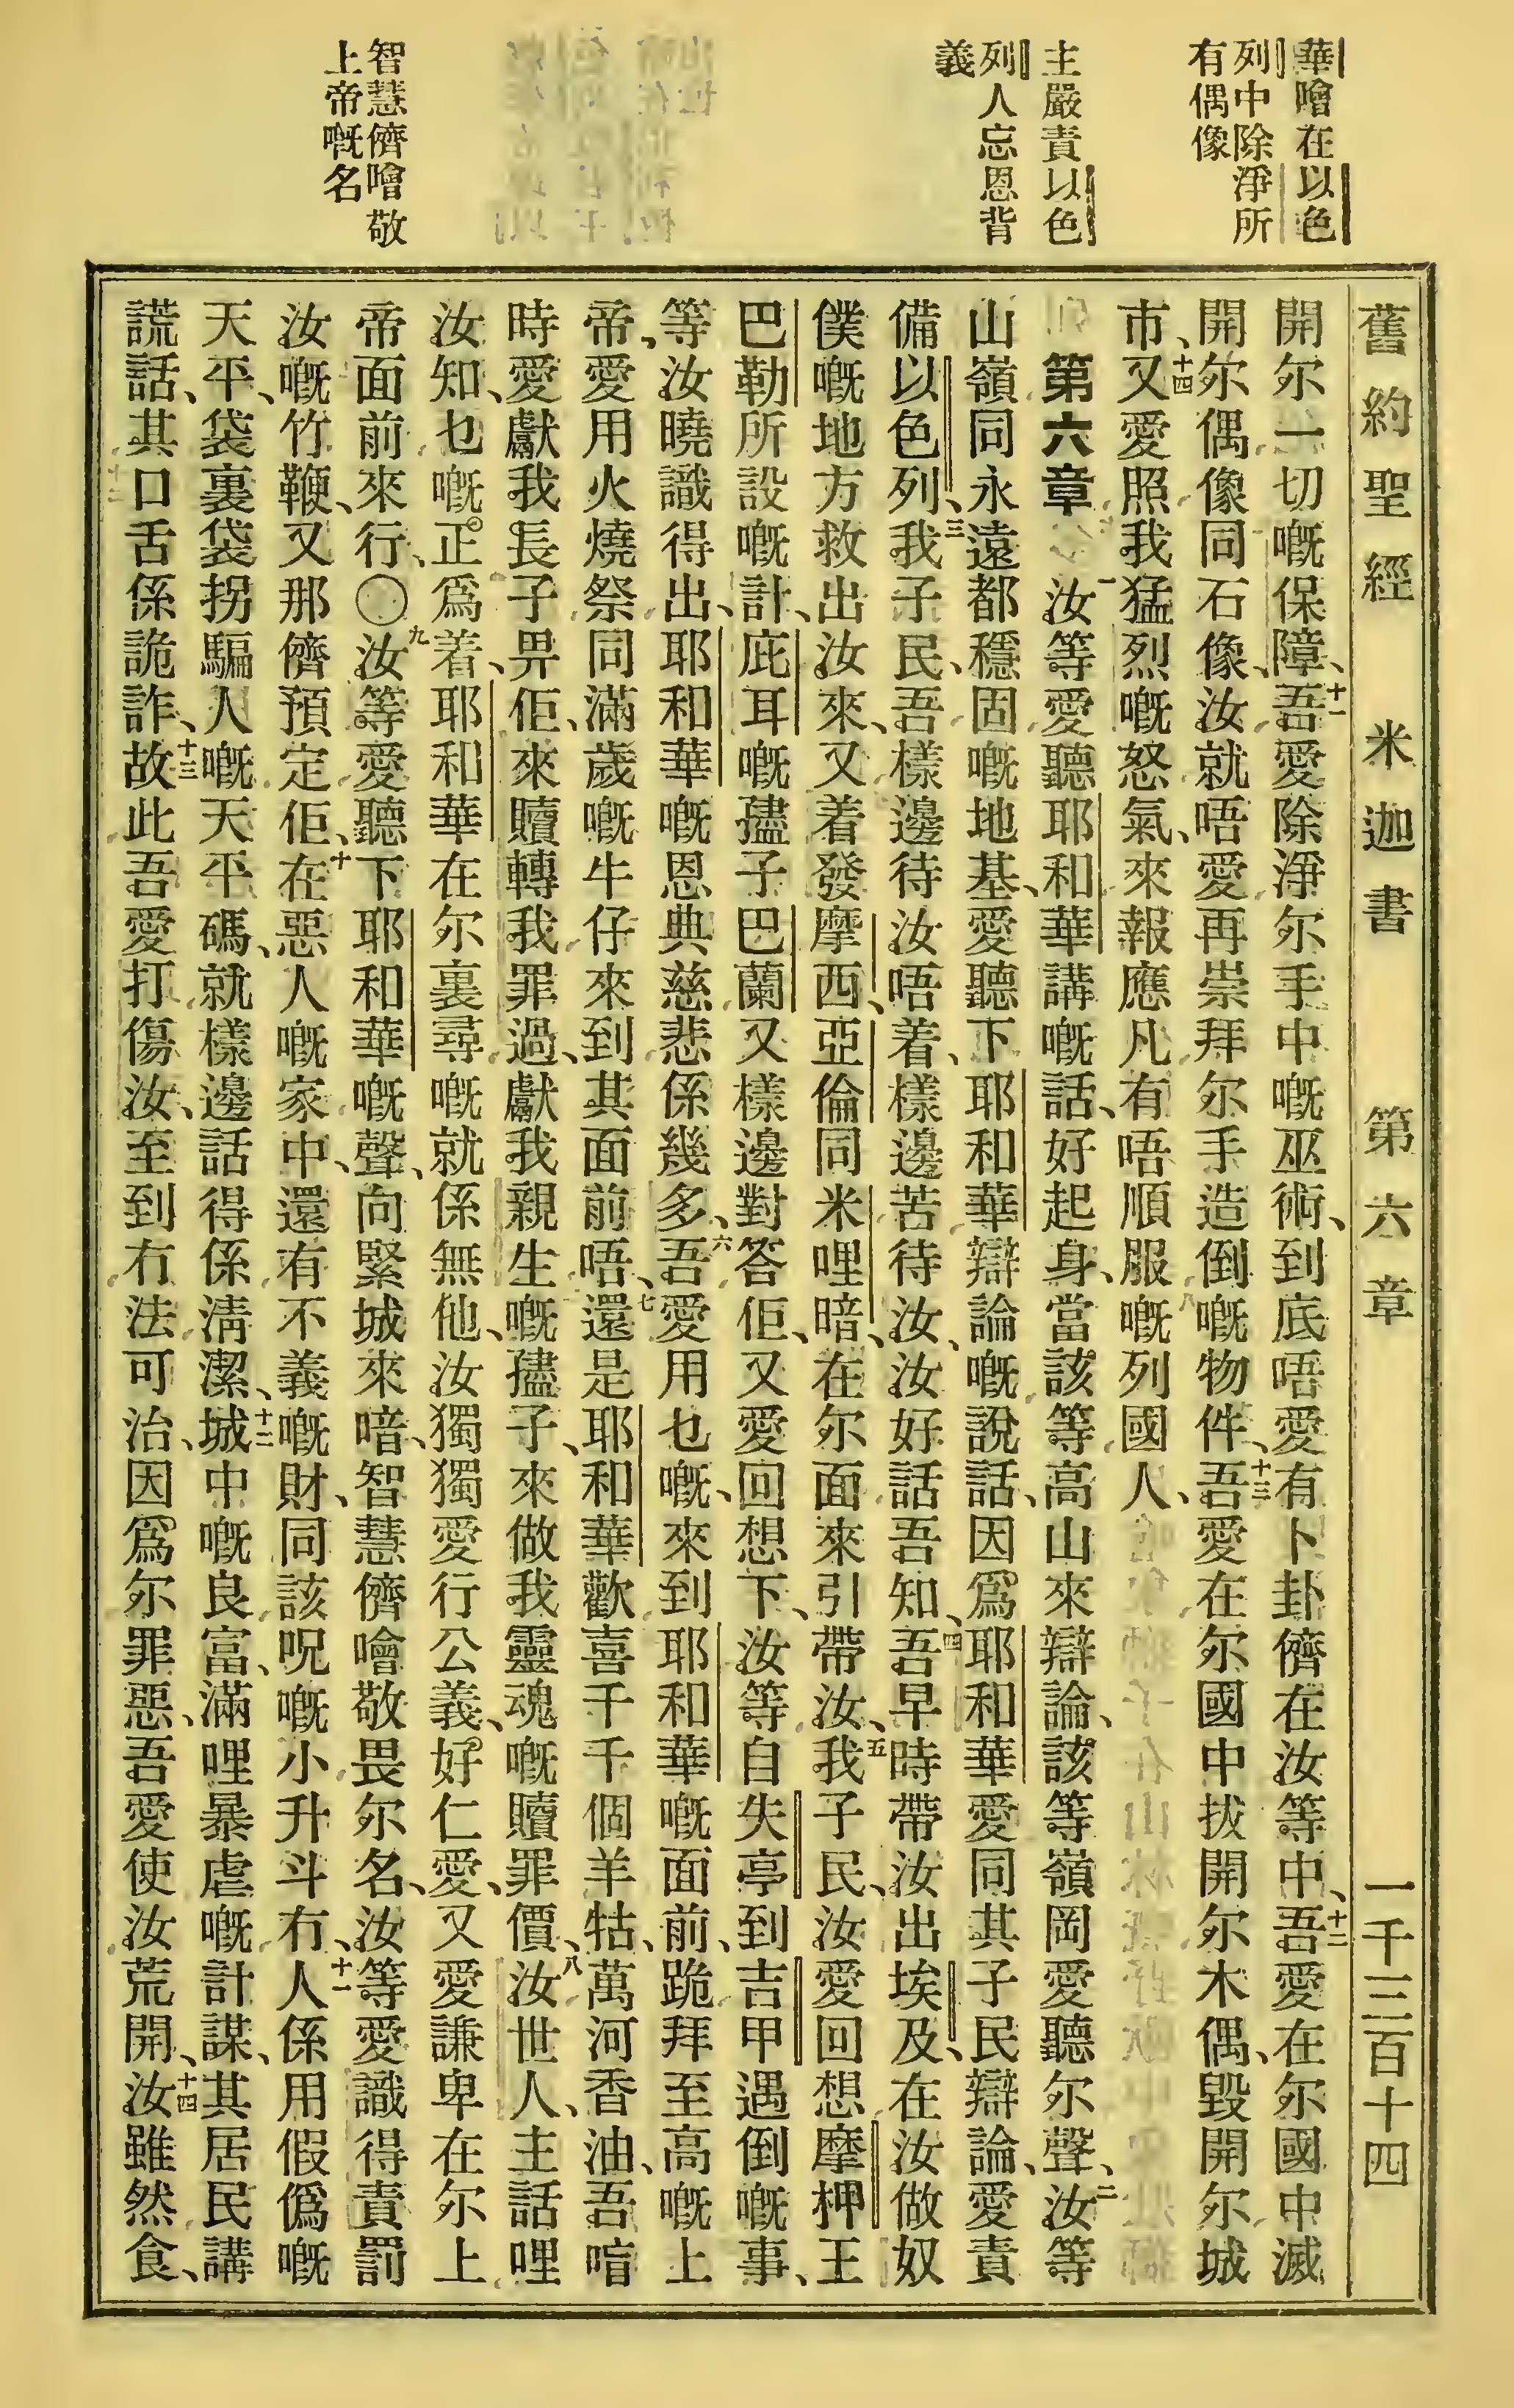 華噲在以色
列中除淨所
有偶像
主嚴責以色
列人忘恩背
義
智慧儕噲敬
上帝嘅名
舊約聖經 米迦書 第六章 一千三百十四
開尔一切嘅保障、十一吾愛除淨尔手中嘅巫術、到底唔愛有卜卦儕在汝等中、十二吾愛在尔國中滅
開尔偶像同石像、汝就唔愛再崇拜尔手造倒嘅物件、十三吾愛在尔國中拔開尔木偶、毀開尔城
市、十四又愛照我猛烈嘅怒氣、來報應凡有唔順服嘅列國人、
第六章 一汝等愛聽耶和華講嘅話、好起身、當該等高山來辯論、該等嶺岡愛聽尔聲、二汝等
山嶺同永遠都穩固嘅地基、愛聽下耶和華辯論嘅說話、因爲耶和華愛同其子民辯論、愛責
備以色列、三我子民、吾樣邊待汝唔着、樣邊苦待汝、汝好話吾知、四吾早時帶汝出埃及、在汝做奴
僕嘅地方救出汝來、又着發摩西、亞倫同米哩暗、在尔面來引帶汝、五我子民、汝愛回想摩柙王
巴勒所設嘅計、庇耳嘅孻子巴蘭又樣邊對答佢、又愛回想下、汝等自失亭到吉甲遇倒嘅事、
等汝曉識得出、耶和華嘅恩典慈悲係幾多、六吾愛用乜嘅、來到耶和華嘅面前、跪拜至高嘅上
帝、愛用火燒祭同滿歲嘅牛仔來到其面前唔、七還是耶和華歡喜千千個羊牯、萬河香油、吾喑
時愛獻我長子畀佢、來贖轉我罪過、獻我親生嘅孻子、來做我靈魂嘅贖罪價、八汝世人、主話哩
汝知、乜嘅正爲着、耶和華在尔裏尋嘅就係無他、汝獨獨愛行公義、好仁愛、又愛謙卑在尔上
帝面前來行、〇九汝等愛聽下耶和華嘅聲、向緊城來喑、智慧儕噲敬畏尔名、汝等愛識得責罰
汝嘅竹鞭、又那儕預定佢、十在惡人嘅家中、還有不義嘅財、同該呪嘅小升斗冇、十一人係用假僞嘅
天平、袋裏袋拐騙人嘅天平碼、就樣邊話得係淸潔、十二城中嘅良富、滿哩暴虐嘅計謀、其居民講
謊話、其口舌係詭詐、十三故此吾愛打傷汝、至到冇法可治、因爲尔罪惡、吾愛使汝荒開、十四汝雖然食、